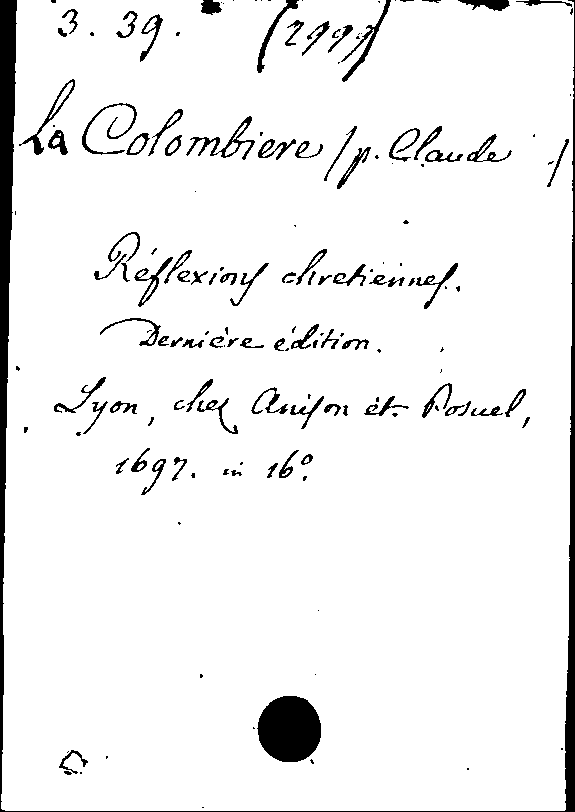 3. 39. (2999)
La Colombiere /p. Claude /
Réflexions chretiennes.
Dernière édition.
Lyon, chez Anison et Posuel,
1697. in 16º.